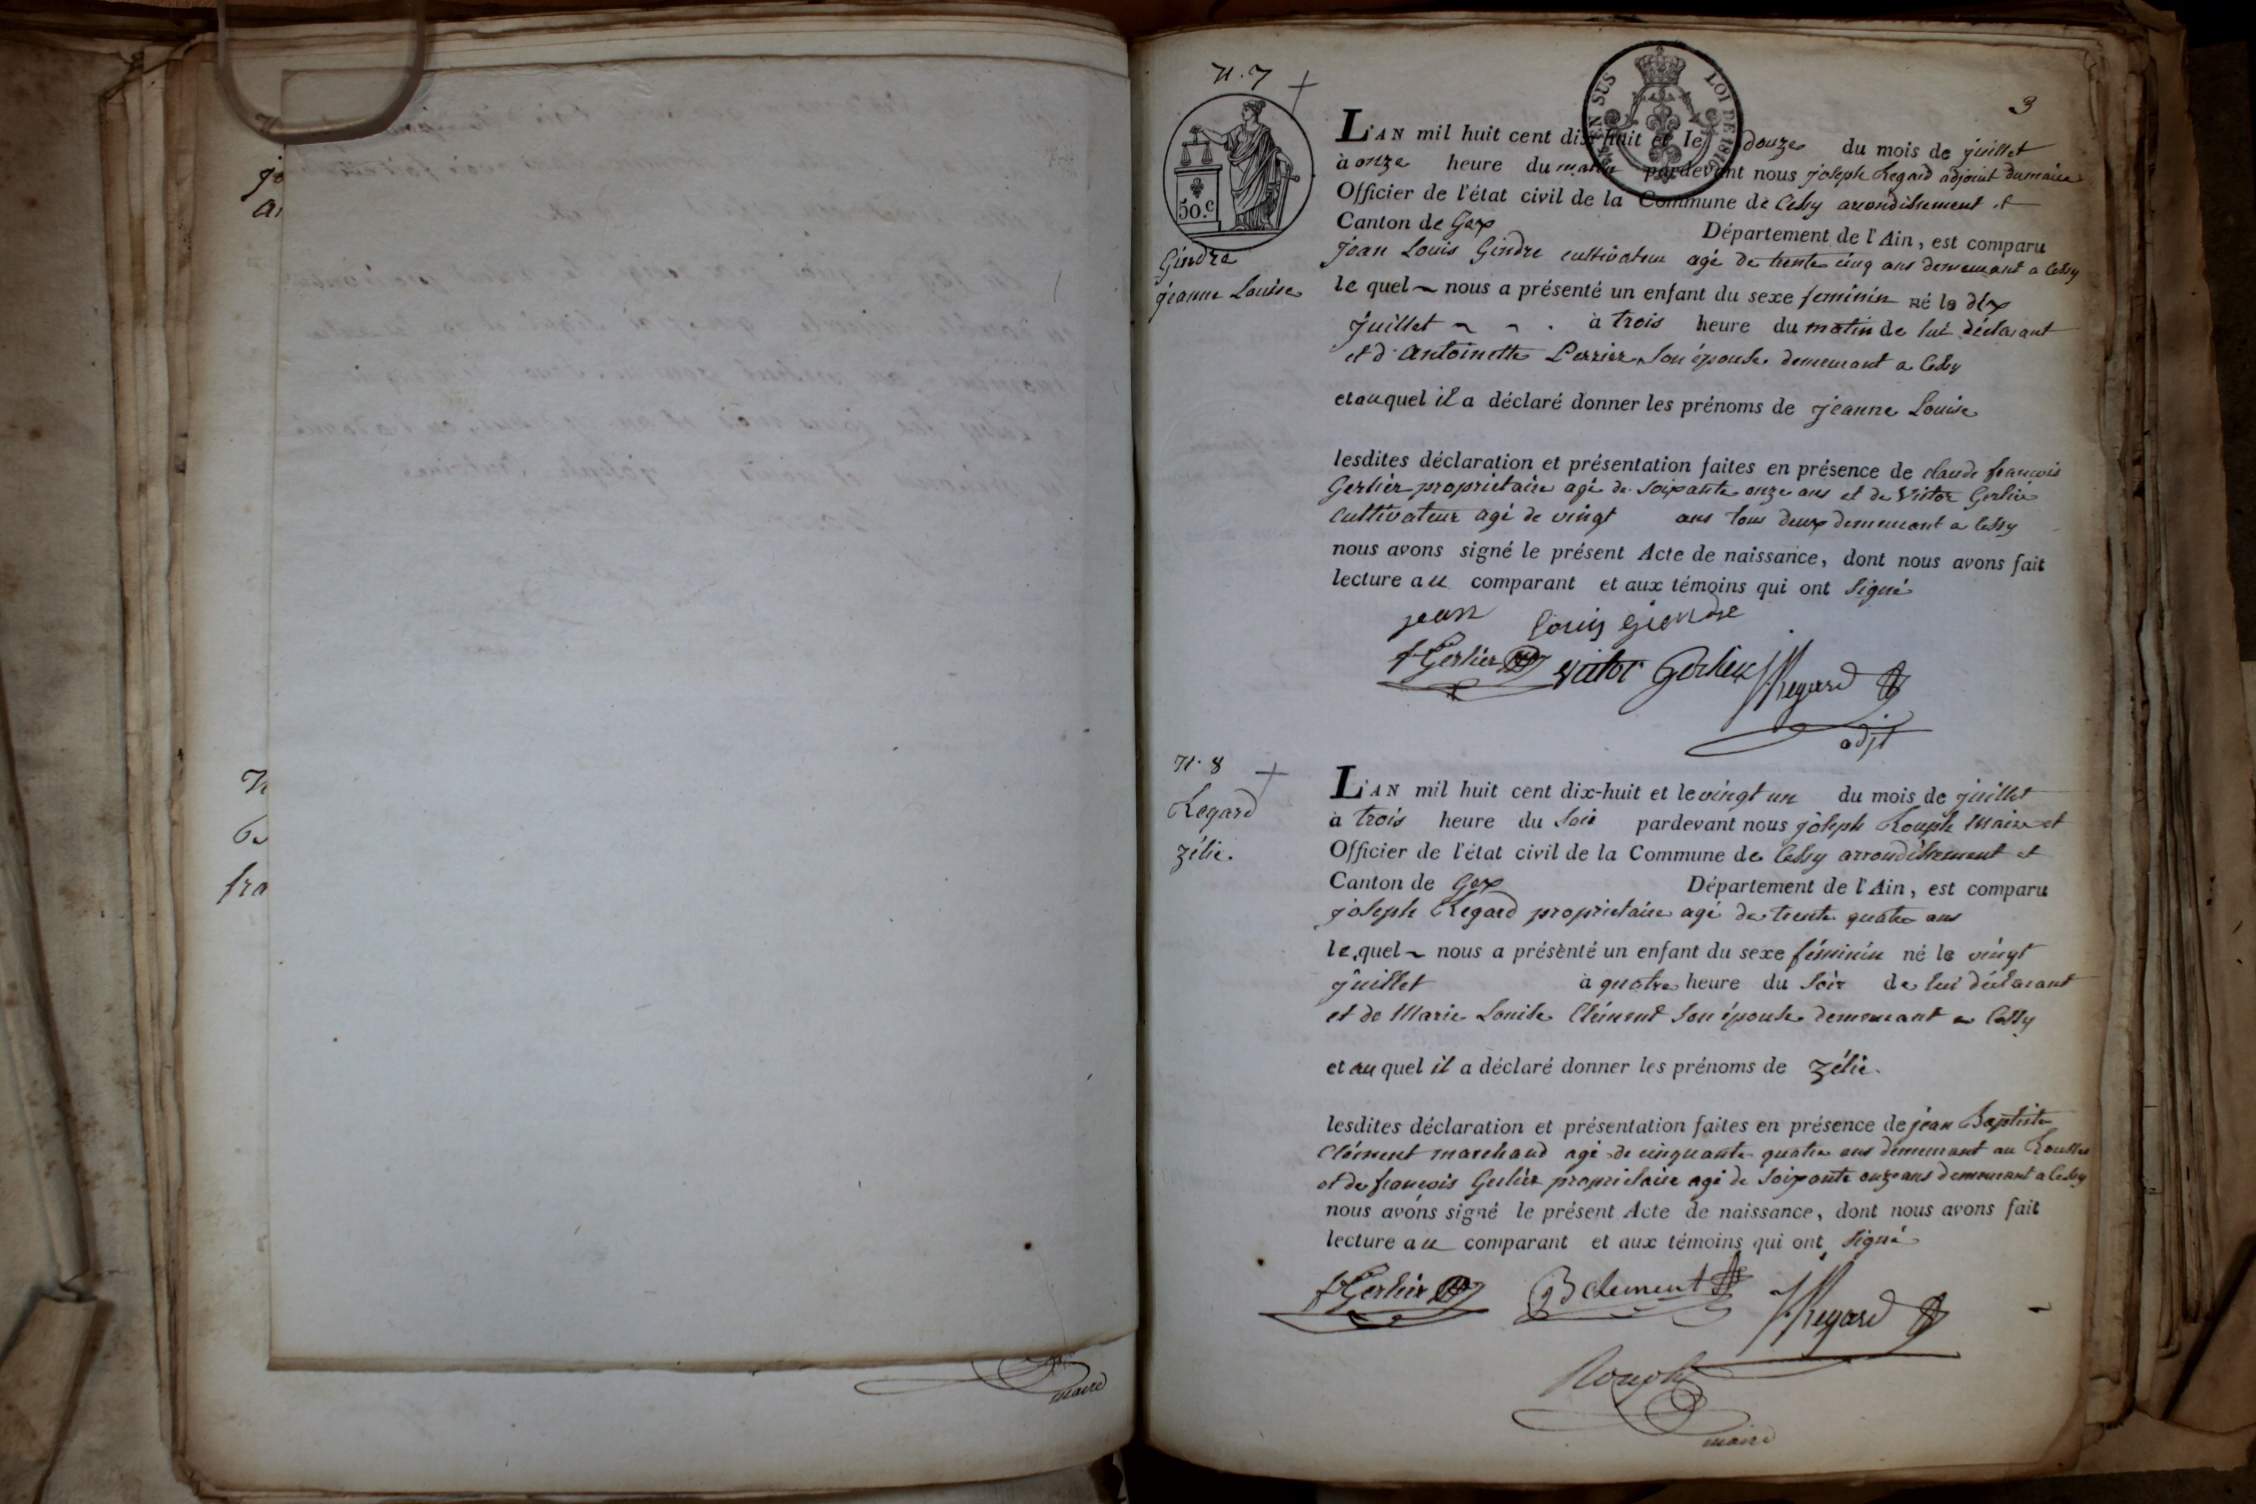 jo
N
fra
maire
N. 7
50.c
EN SUS
LOI DE 1816
3
Gindre
jeanne Louise
L'AN mil huit cent dix-huit et le douze du mois de juillet
à onze heure du matin pardevant nous joseph Regard adjoint du maire
Officier de l'état civil de la Commune de Cessy arrondissement et
Canton de Gex Département de l'Ain, est comparu
jean Louis Gindre cultivateur agé de trente cinq ans demeurant a Cessy
le quel ~ nous a présenté un enfant du sexe feminin né le dix
juillet ~ ~ . à trois heure du matin de lui déclarant
et d'antoinette Perrier son épouse demeurant a Cessy
et au quel il a déclaré donner les prénoms de jeanne Louise
lesdites déclaration et présentation faites en présence de claude francois
Gerlier proprietaire agé de soixante onze ans et de Victor Gerlier
cultivateur agé de vingt ans tous deux demeurant a Cessy
nous avons signé le présent Acte de naissance, dont nous avons fait
lecture au comparant et aux témoins qui ont signé
jean Louis Giendre
f Gerlier victor Gerlier J Regard
adjt
N. 8
Regard
zélie.
L'AN mil huit cent dix-huit et le vingt un du mois de juillet
à trois heure du soir pardevant nous joseph Rouph Maire et
Officier de l'état civil de la Commune de Cessy arrondissement et
Canton de Gex Département de l'Ain, est comparu
joseph Regard proprietaire agé de trente quatre ans
le quel ~ nous a présenté un enfant du sexe féminin né le vingt
juillet à quatre heure du soir de lui déclarant
et de Marie Louise Clément son épouse demeurant a Cessy
et au quel il a déclaré donner les prénoms de zélie.
lesdites déclaration et présentation faites en présence de jean Baptiste
Clément marchand agé de cinquante quatre ans demeurant au
et de francois Gerlier proprietaire agé de soixante onze ans demeurant a Cessy
nous avons signé le présent Acte de naissance, dont nous avons fait
lecture au comparant et aux témoins qui ont signé
f Gerlier JB clement J Regard
Rouph
maire